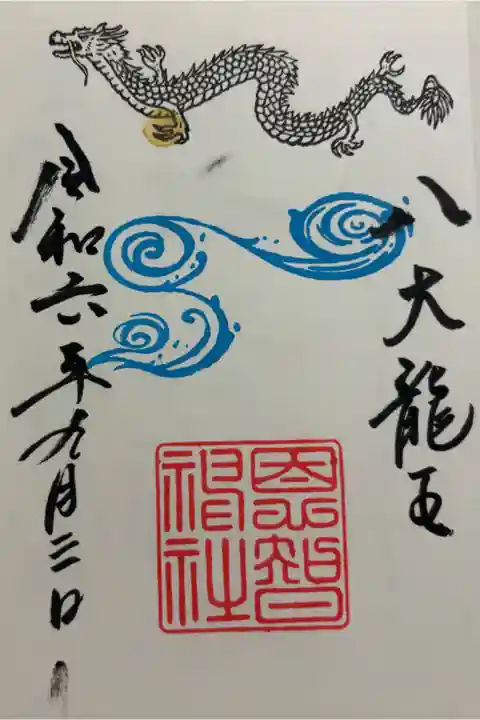 八大龍王
恩智
神社
令和六年九月三日